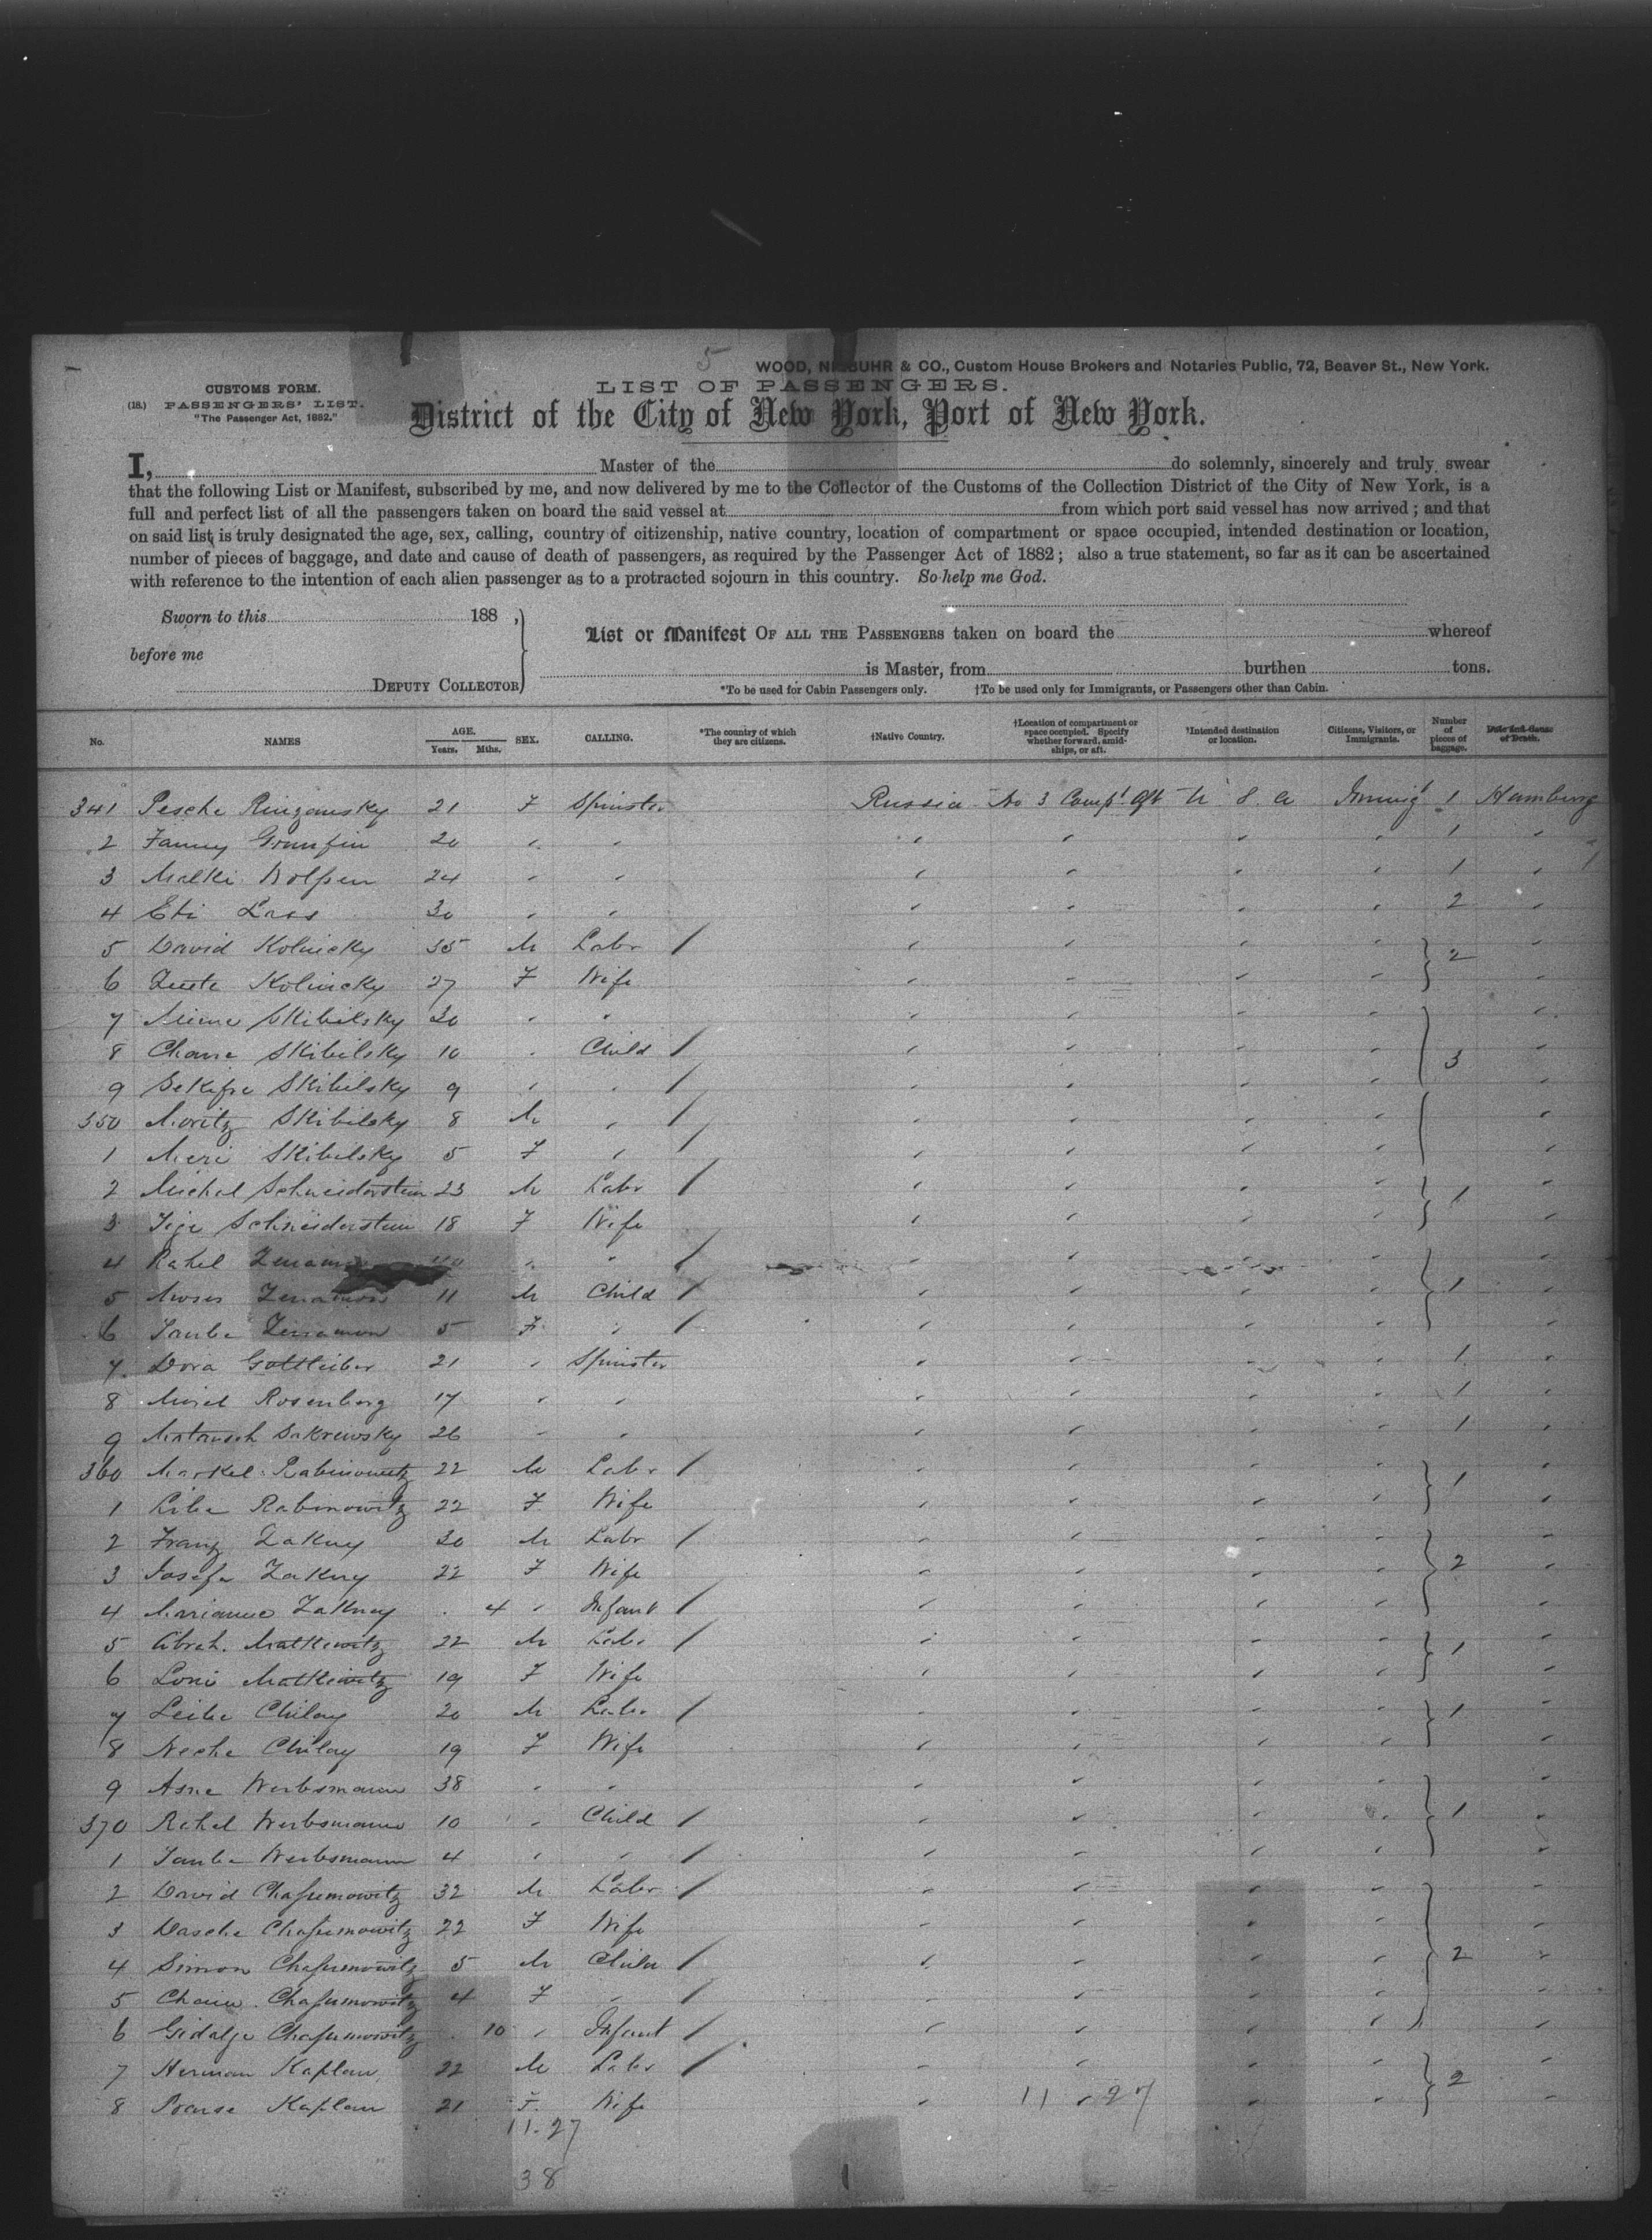 5
WOOD, NIEBUHR & CO., Custom House Brokers and Notaries Public, 72, Beaver St., New York.
CUSTOMS FORM.
(18.) PASSENGERS' LIST.
"The Passenger Act, 1882."
LIST OF PASSENGERS.
District of the City of New York, Port of New York.
I, Master of the do solemnly, sincerely and truly swear
that the following List or Manifest, subscribed by me, and now delivered by me to the Collector of the Customs of the Collection District of the City of New York, is a
full and perfect list of all the passengers taken on board the said vessel at from which port said vessel has now arrived; and that
on said list is truly designated the age, sex, calling, country of citizenship, native country, location of compartment or space occupied, intended destination or location,
number of pieces of baggage, and date and cause of death of passengers, as required by the Passenger Act of 1882; also a true statement, so far as it can be ascertained
with reference to the intention of each alien passenger as to a protracted sojourn in this country. So help me God.
Sworn to this 188 ,
before me
DEPUTY COLLECTOR
List or Manifest OF ALL THE PASSENGERS taken on board the whereof
is Master, from burthen tons.
*To be used for Cabin Passengers only. †To be used only for Immigrants, or Passengers other than Cabin.
No. NAMES AGE. Years. Mths. SEX. CALLING. *The country of which they are citizens. †Native Country. †Location of compartment or space occupied. Specify whether forward, amidships, or aft. †Intended destination or location. Citizens, Visitors, or Immigrants. Number of pieces of baggage. Date and Cause of Death.
341 Pesche 21 F Spinster Russia No 3 Compt Aft U S. a Immigt 1 Hamburg
2 Fanny 20 " " " " " " 1 "
3 Malki Wolpen 24 " " " " " " 1 "
4 Eti Lass 30 " " " " " " 2 "
5 David Kolnicky 35 M Labr / " " " " 2 "
6 Kolnicky 27 F Wife " " " " "
7 Skibilsky 30 " " " " " " 3 "
8 Chane Skibilsky 10 " Child / " " " " "
9 Skibilsky 9 " " / " " " " "
350 Moritz Skibilsky 8 M " / " " " " "
1 Meri Skibilsky 5 F " / " " " " "
2 Michel Schneiderstein 23 M Labr / " " " " 1 "
3 Schneiderstein 18 F Wife " " " " "
4 Rahel " " / " " " " 1 "
5 Moses Zenamon 11 M Child / " " " " "
6 Taube Zenamon 5 F " / " " " " "
7 Dora Gottlieber 21 " Spinster " " " " 1 "
8 Rosenberg 17 " " " " " " 1 "
9 Sakrewsky 26 " " " " " " 1 "
360 Markel Rabinowitz 22 M Labr / " " " " 1 "
1 Liba Rabinowitz 22 F Wife " " " " "
2 Franz Zakny 30 M Labr / " " " " 2 "
3 Josefa Zakny 22 F Wife " " " " "
4 Marianne Zakny 4 " Infant / " " " " "
5 Abrah. Matkewitz 22 M Labr / " " " " 1 "
6 Matkewitz 19 F Wife " " " " "
7 Leibe Chilay 20 M Labr / " " " " 1 "
8 Neche Chilay 19 F Wife " " " " "
9 Asne Werbsmann 38 " " " " " " 1 "
370 Rahel Werbsmann 10 " Child / " " " " "
1 Taube Werbsmann 4 " " / " " " " "
2 David 32 M Labr / " " " " 2 "
3 Dasche 22 F Wife " " " " "
4 Simon 5 M Child / " " " " "
5 4 F " / " " " " "
6 10 " Infant / " " " " "
7 Herman Kaplan 22 M Labr / " " " " 2 "
8 Kaplan 21 F. Wife " " " " "
11 27
11.27
38